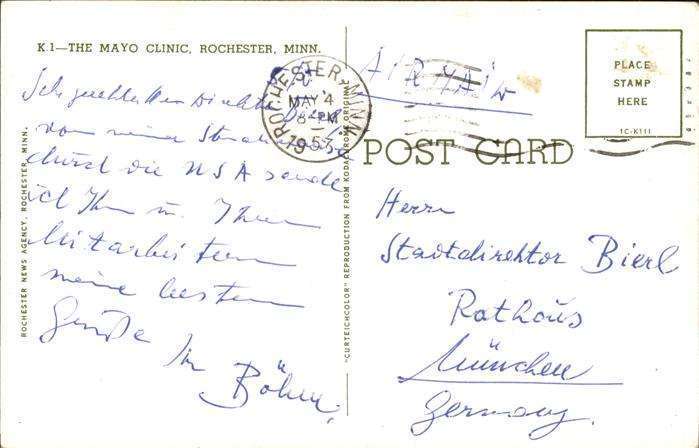 K 1—THE MAYO CLINIC, ROCHESTER, MINN.
Sehr geehrter Herr Direktor
von meiner
durch die USA sende
ich Ihnen u. Ihren
Mitarbeitern
meine besten
Grüße
Ihr
Böhm
ROCHESTER NEWS AGENCY, ROCHESTER, MINN.
"CURTEICHCOLOR" REPRODUCTION FROM KODACHROME ORIGINAL
ROCHESTER, MINN.
MAY 4
8-PM
1953
AIR MAIL
PLACE
STAMP
HERE
1C-K111
POST CARD
Herrn
Stadtdirektor Bierl
Rathaus
München
Germany.